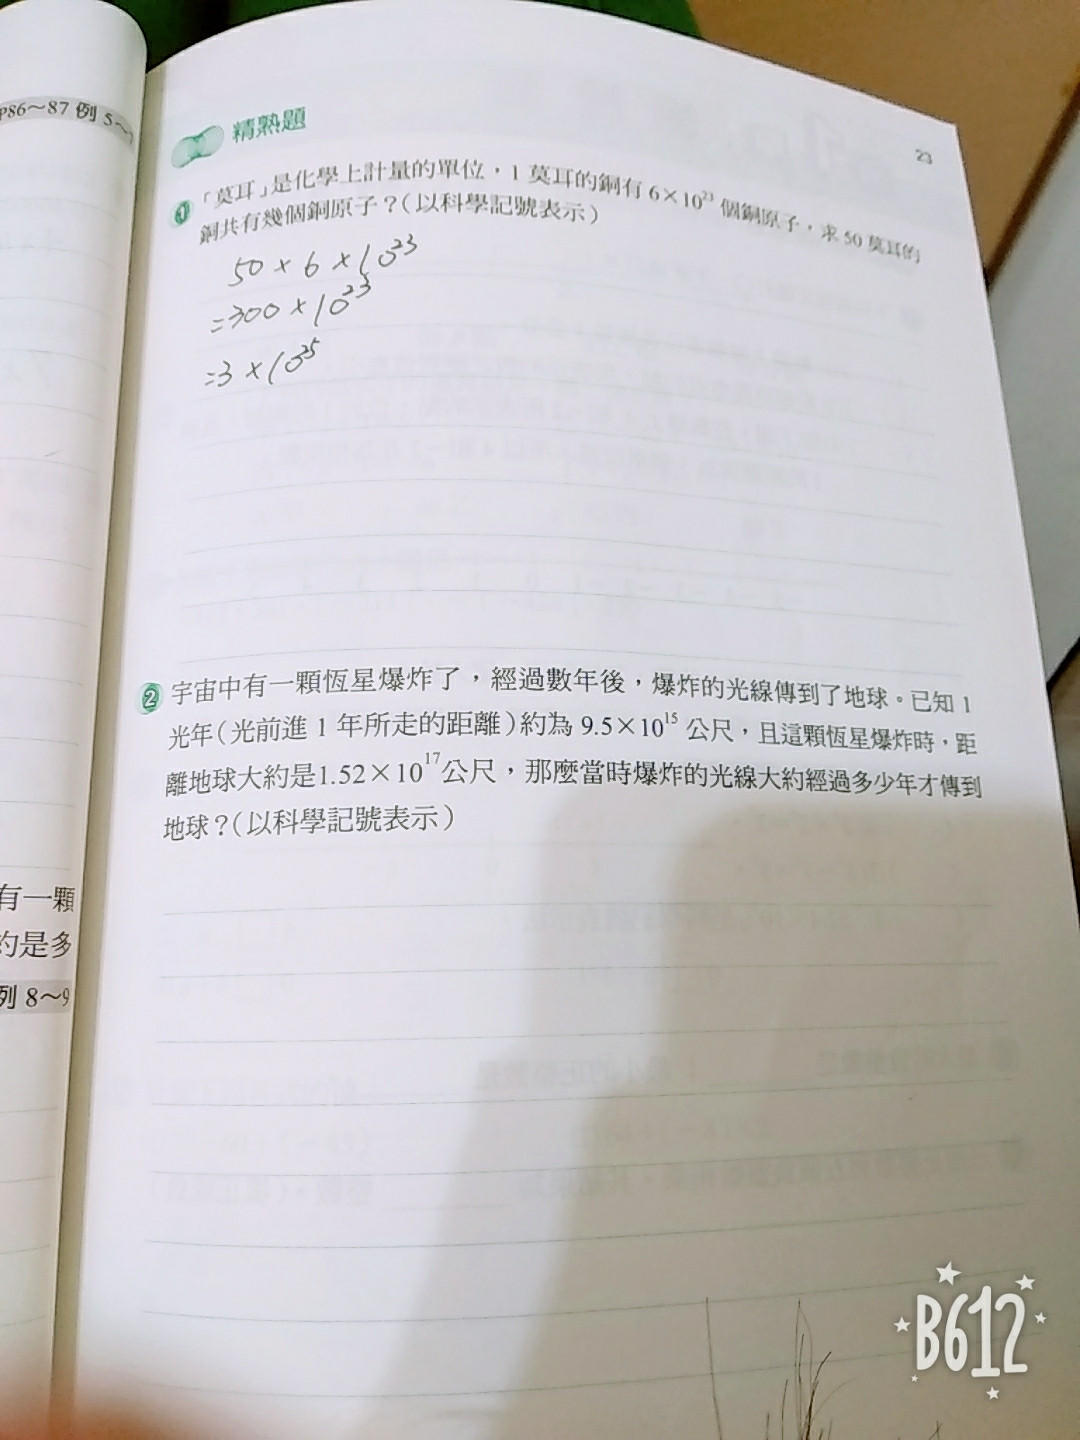 P86～87 例 5～7
23
精熟題
1 「莫耳」是化學上計量的單位，1 莫耳的銅有 6×10²³ 個銅原子，求 50 莫耳的
銅共有幾個銅原子？(以科學記號表示)
50×6×10²³
=300×10²³
=3×10²⁵
2 宇宙中有一顆恆星爆炸了，經過數年後，爆炸的光線傳到了地球。已知 1
光年(光前進 1 年所走的距離)約為 9.5×10¹⁵ 公尺，且這顆恆星爆炸時，距
離地球大約是1.52×10¹⁷公尺，那麼當時爆炸的光線大約經過多少年才傳到
地球？(以科學記號表示)
有一顆
約是多
例 8～9
B612